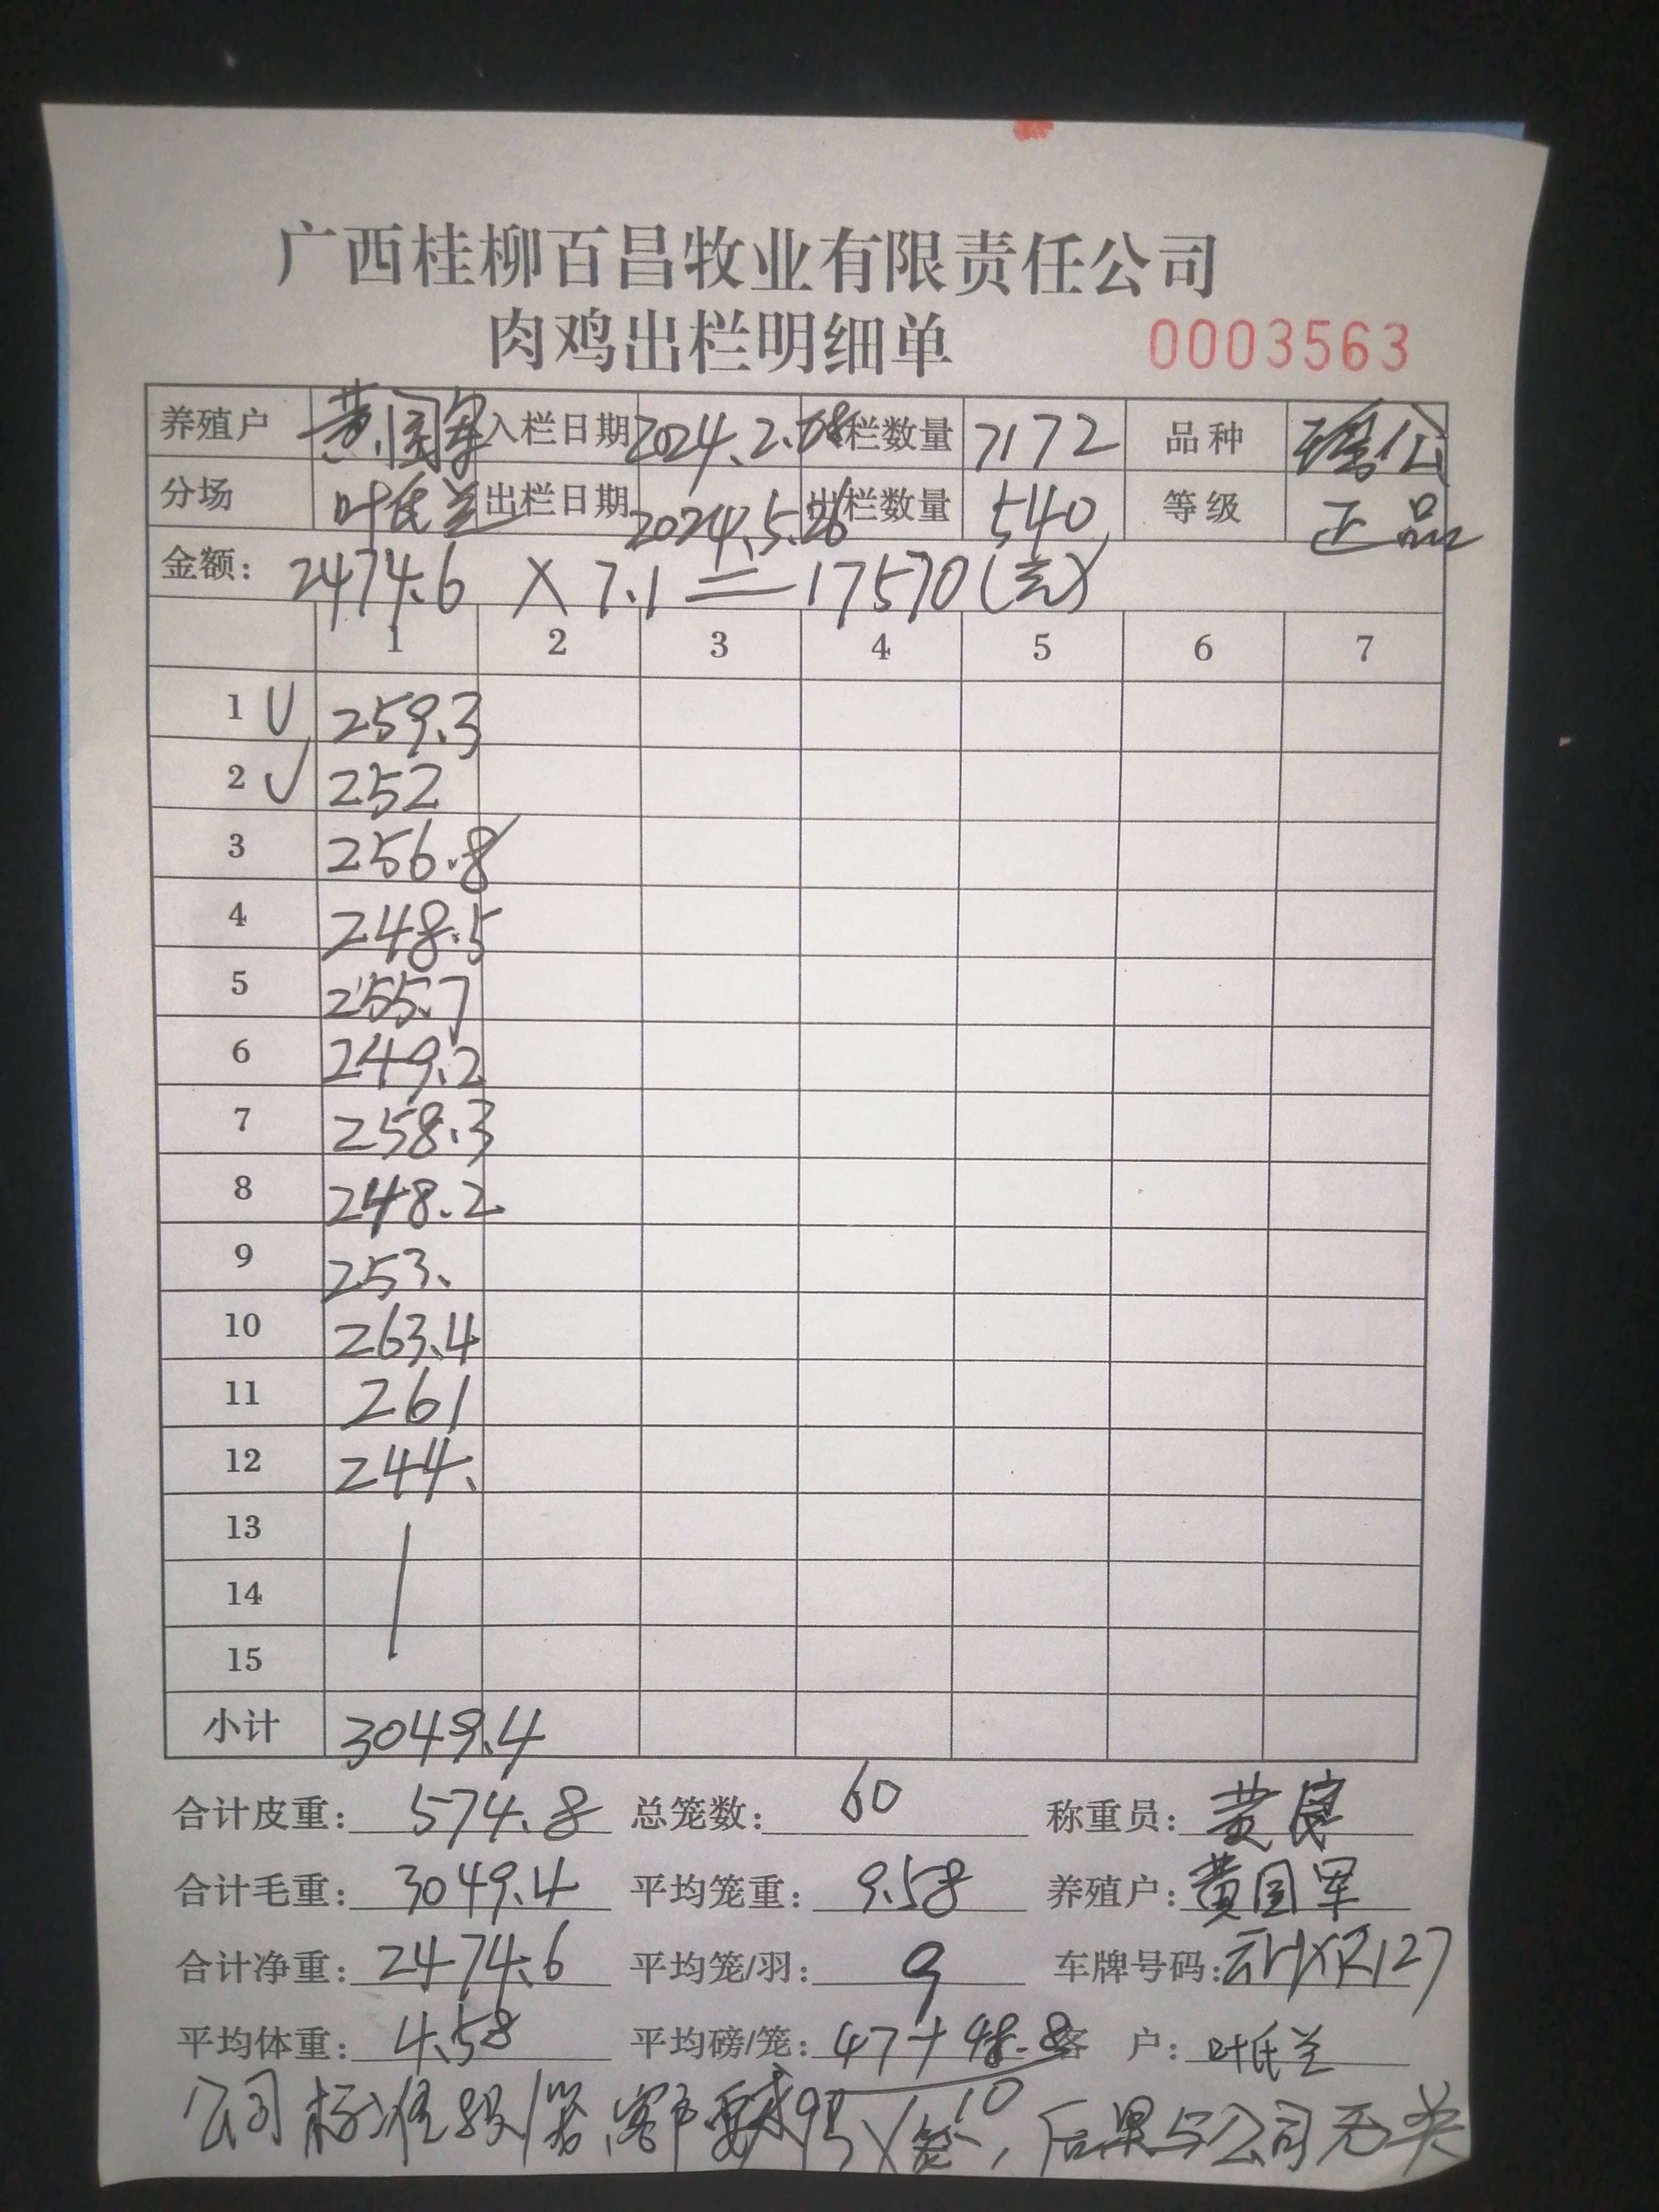 广西桂柳百昌牧业有限责任公司
肉鸡出栏明细单 0003563
养殖户 黄国军 入栏日期 2024.2.08 栏数量 7172 品种 瑶公
分场 叶氏兰 出栏日期 2024.5.26 出栏数量 540 等级 正品
金额: 2474.6 × 7.1 = 17570(元)
1 2 3 4 5 6 7
1 259.3
2 252
3 256.8
4 248.5
5 255.7
6 249.2
7 258.3
8 248.2
9 253.
10 263.4
11 261
12 244.
13
14
15
小计 3049.4
合计皮重: 574.8 总笼数: 60 称重员: 黄
合计毛重: 3049.4 平均笼重: 9.58 养殖户: 黄国军
合计净重: 2474.6 平均笼/羽: 9 车牌号码: 127
平均体重: 4.58 平均磅/笼: 47+48.8 客户: 叶氏兰
10
公司标准 客户要求 后果与公司无关